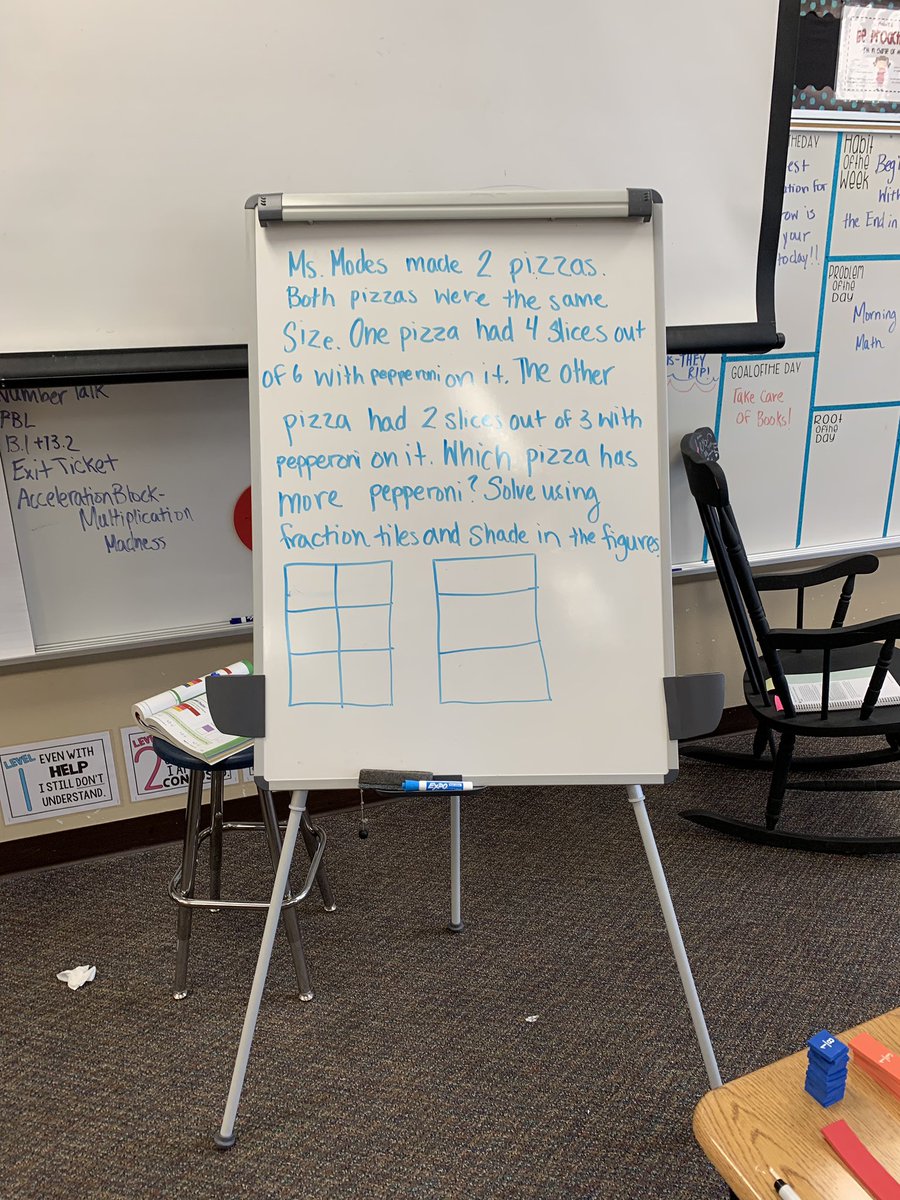 Ms. Modes made 2 pizzas.
Both pizzas were the same
Size. One pizza had 4 slices out
of 6 with pepperoni on it. The other
pizza had 2 slices out of 3 with
pepperoni on it. Which pizza has
more pepperoni? Solve using
fraction tiles and Shade in the figures.
Number Talk
PBL
13.1 + 13.2
Exit Ticket
Acceleration Block-
Multiplication
Madness
LEVEL
1
EVEN WITH
HELP
I STILL DON'T
UNDERSTAND.
2
EXPO
BE PROACTI
HABIT
OF THE
WEEK
Begi
With
the End in
your
today!!
PROBLEM
OF THE
DAY
Morning
Math
THEY
RIP!
GOAL OF THE DAY
Take Care
of Books!
ROOT
OF THE
DAY